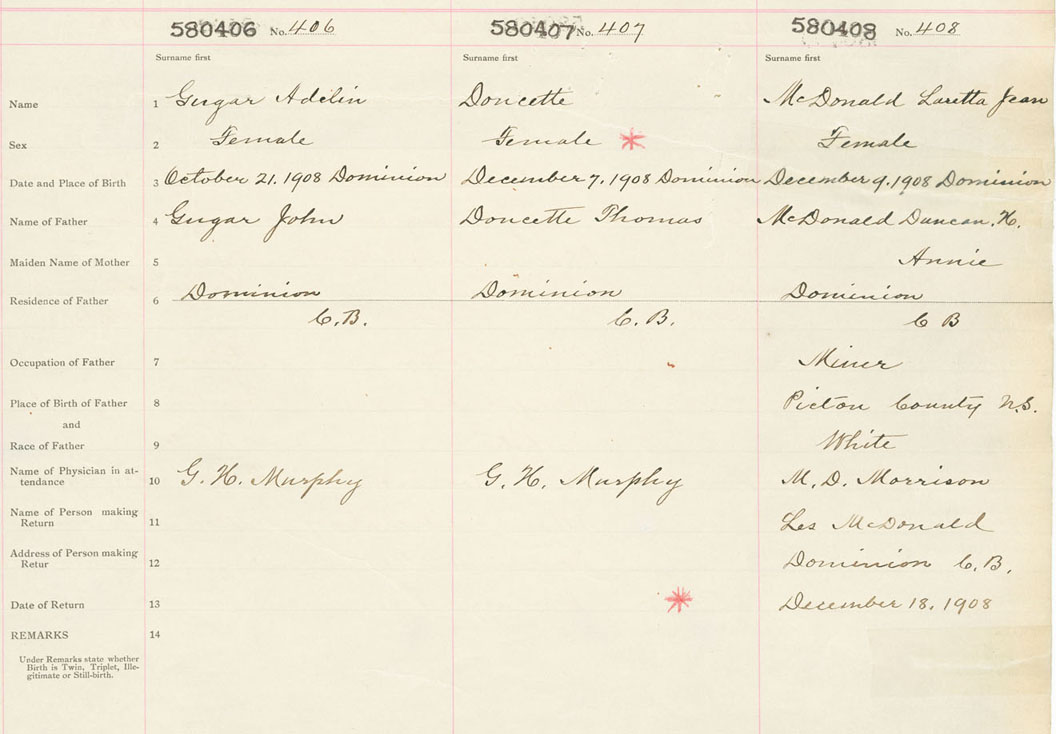 580406 No. 406 580407 No. 407 580408 No. 408
Surname first Surname first Surname first
Name 1 Gugar Adelin Doucette McDonald Loretta Jean
Sex 2 Female Female Female
Date and Place of Birth 3 October 21. 1908 Dominion December 7, 1908 Dominion December 9. 1908 Dominion
Name of Father 4 Gugar John Doucette Thomas McDonald Duncan. H.
Maiden Name of Mother 5 Annie
Residence of Father 6 Dominion Dominion Dominion
C.B. C.B. C B
Occupation of Father 7 Miner
Place of Birth of Father 8 Picton County N.S.
and
Race of Father 9 White
Name of Physician in at-
tendance 10 G. H. Murphy G. H. Murphy M. D. Morrison
Name of Person making
Return 11 Les McDonald
Address of Person making
Retur 12 Dominion C.B.
Date of Return 13 December 18. 1908
REMARKS 14
Under Remarks state whether
Birth is Twin, Triplet, Ille-
gitimate or Still-birth.